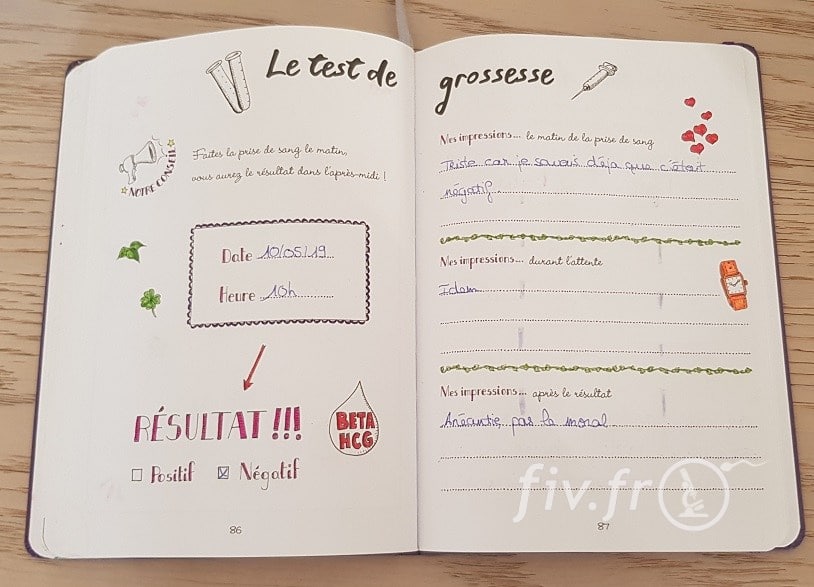 Le test de
NOTRE CONSEIL
Faites la prise de sang le matin,
vous aurez le résultat dans l'après-midi !
Date 10/05/19
Heure 10h
RÉSULTAT !!!
BETA
HCG
☐ Positif ☒ Négatif
86
grossesse
Mes impressions... le matin de la prise de sang
Triste car je savais déja que c'était
négatif.
Mes impressions... durant l'attente
Idem
Mes impressions... après le résultat
Anéantie, pas la moral
fiv.fr
87